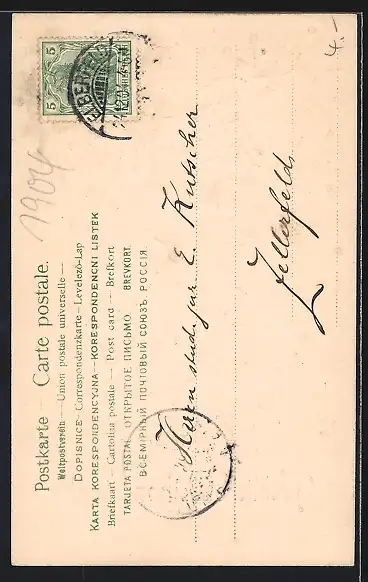 Postkarte — Carte postale.
Weltpostverein — Union postale universelle —
DOPISNICE — Correspondenzkarte — Levelező-Lap
KARTA KORESPONDENCYJNA — KORESPONDENCNI LISTEK
Briefkaart — Cartolina postale — Post card — Brefkort
TARJETA POSTAL ОТКРЫТОЕ ПИСЬМО BREVKORT.
ВСЕМІРНЫЙ ПОЧТОВЫЙ СОЮЗЪ РОССІЯ.
Herrn stud. jur E. Kutscher
Zellerfeld
1904
4.-
5 5